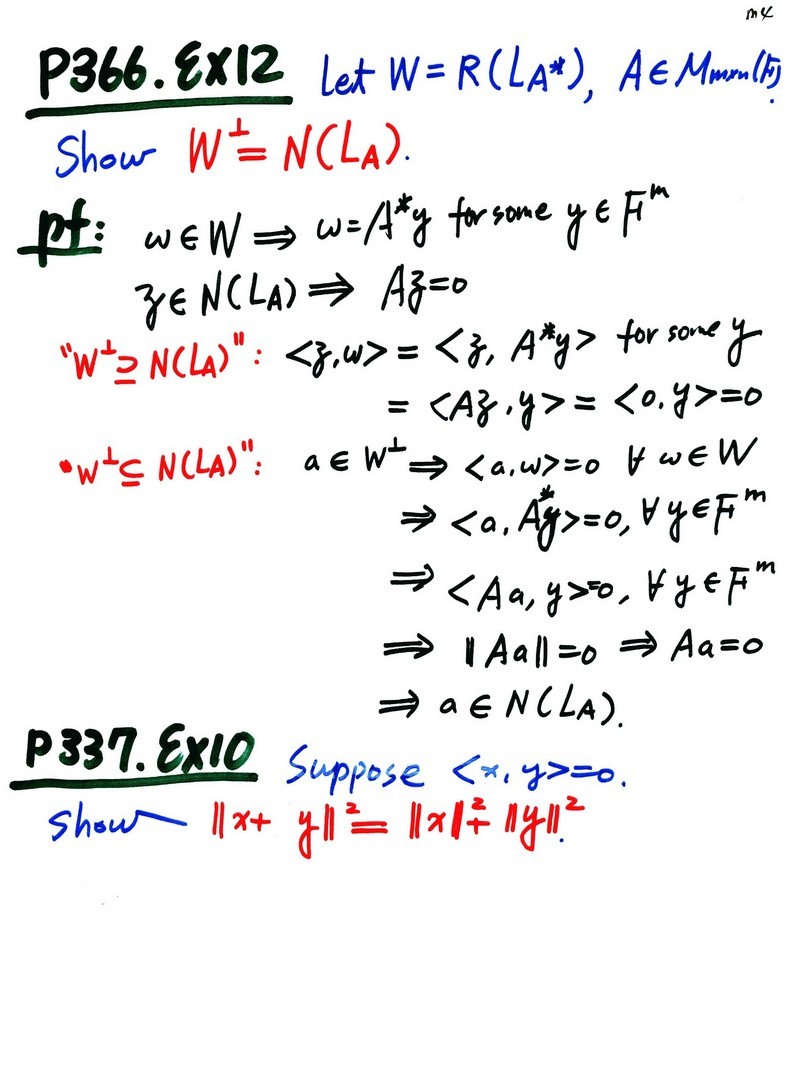 m4
P366. Ex12 Let W = R(L_A*), A ∈ M_m×n(F).
Show W^⊥ = N(L_A).
pf: w ∈ W ⟹ w = A*y for some y ∈ F^m
z ∈ N(L_A) ⟹ Az = 0
"W^⊥ ⊇ N(L_A)": <z, w> = <z, A*y> for some y
= <Az, y> = <0, y> = 0
"W^⊥ ⊆ N(L_A)": a ∈ W^⊥ ⟹ <a, w> = 0 ∀ w ∈ W
⟹ <a, A*y> = 0, ∀ y ∈ F^m
⟹ <Aa, y> = 0, ∀ y ∈ F^m
⟹ ‖Aa‖ = 0 ⟹ Aa = 0
⟹ a ∈ N(L_A).
P337. Ex10 Suppose <x, y> = 0.
Show ‖x + y‖² = ‖x‖² + ‖y‖².